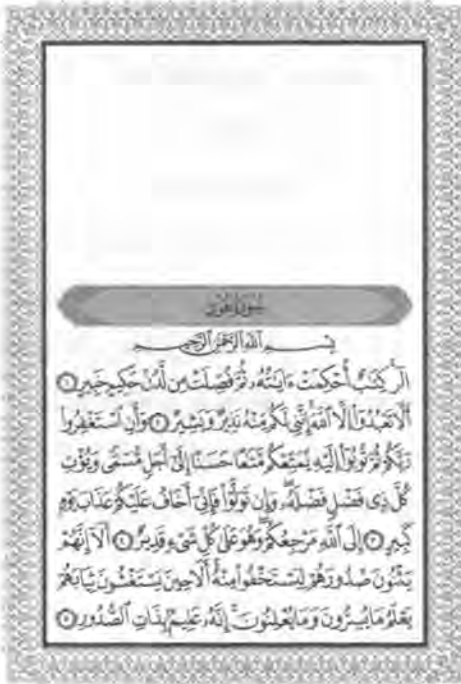 سُورَةُ هُودٍ
بِسْمِ ٱللَّهِ ٱلرَّحْمَٰنِ ٱلرَّحِيمِ
الٓر كِتَٰبٌ أُحْكِمَتْ ءَايَٰتُهُۥ ثُمَّ فُصِّلَتْ مِن لَّدُنْ حَكِيمٍ خَبِيرٍ ١
أَلَّا تَعْبُدُوٓا۟ إِلَّا ٱللَّهَ إِنَّنِى لَكُم مِّنْهُ نَذِيرٌ وَبَشِيرٌ ٢ وَأَنِ ٱسْتَغْفِرُوا۟
رَبَّكُمْ ثُمَّ تُوبُوٓا۟ إِلَيْهِ يُمَتِّعْكُم مَّتَٰعًا حَسَنًا إِلَىٰٓ أَجَلٍ مُّسَمًّى وَيُؤْتِ
كُلَّ ذِى فَضْلٍ فَضْلَهُۥ وَإِن تَوَلَّوْا۟ فَإِنِّىٓ أَخَافُ عَلَيْكُمْ عَذَابَ يَوْمٍ
كَبِيرٍ ٣ إِلَى ٱللَّهِ مَرْجِعُكُمْ وَهُوَ عَلَىٰ كُلِّ شَىْءٍ قَدِيرٌ ٤ أَلَآ إِنَّهُمْ
يَثْنُونَ صُدُورَهُمْ لِيَسْتَخْفُوا۟ مِنْهُ أَلَا حِينَ يَسْتَغْشُونَ ثِيَابَهُمْ
يَعْلَمُ مَا يُسِرُّونَ وَمَا يُعْلِنُونَ إِنَّهُۥ عَلِيمٌۢ بِذَاتِ ٱلصُّدُورِ ٥